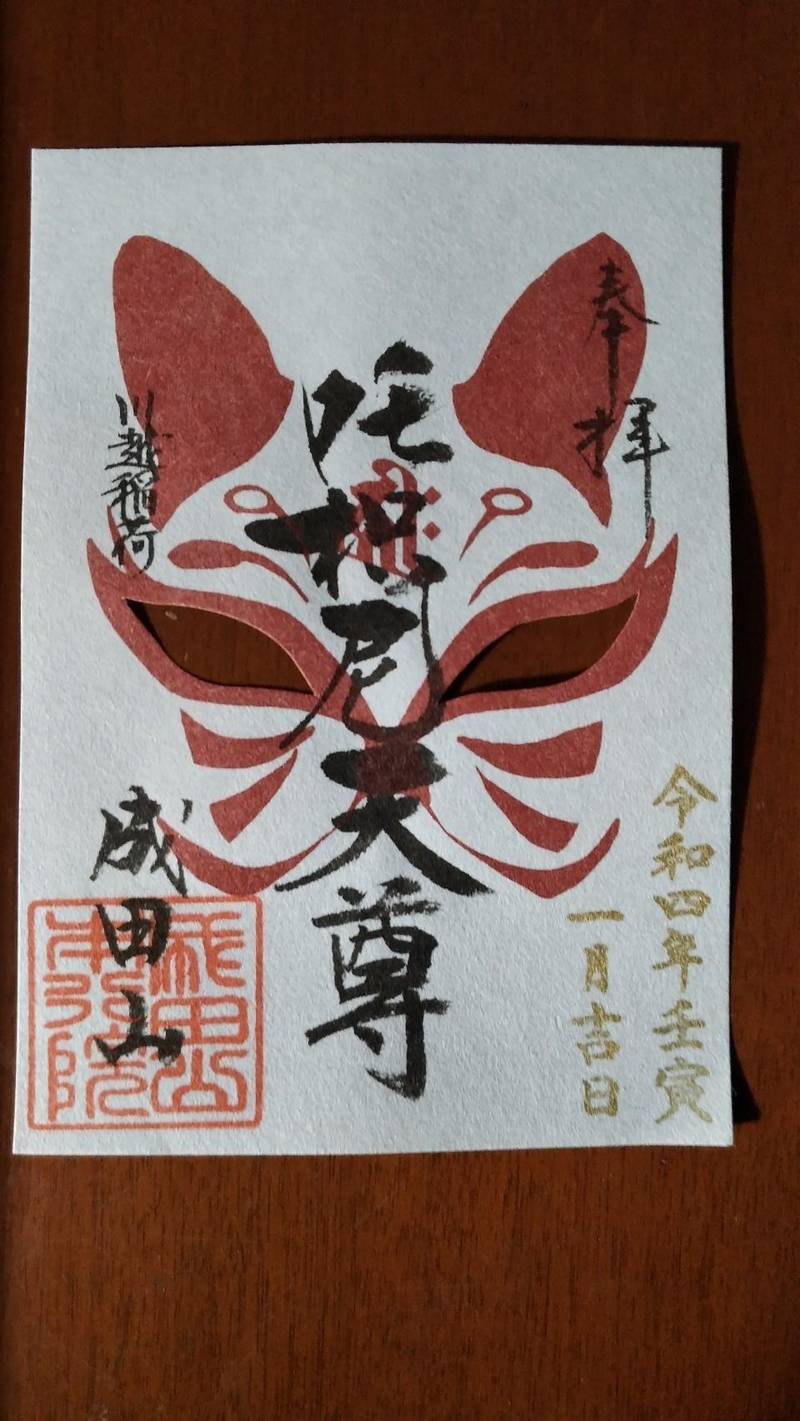 奉拝
令和四年壬寅
一月吉日
吒枳尼天尊
川越稲荷
成田山
成田山
本行院